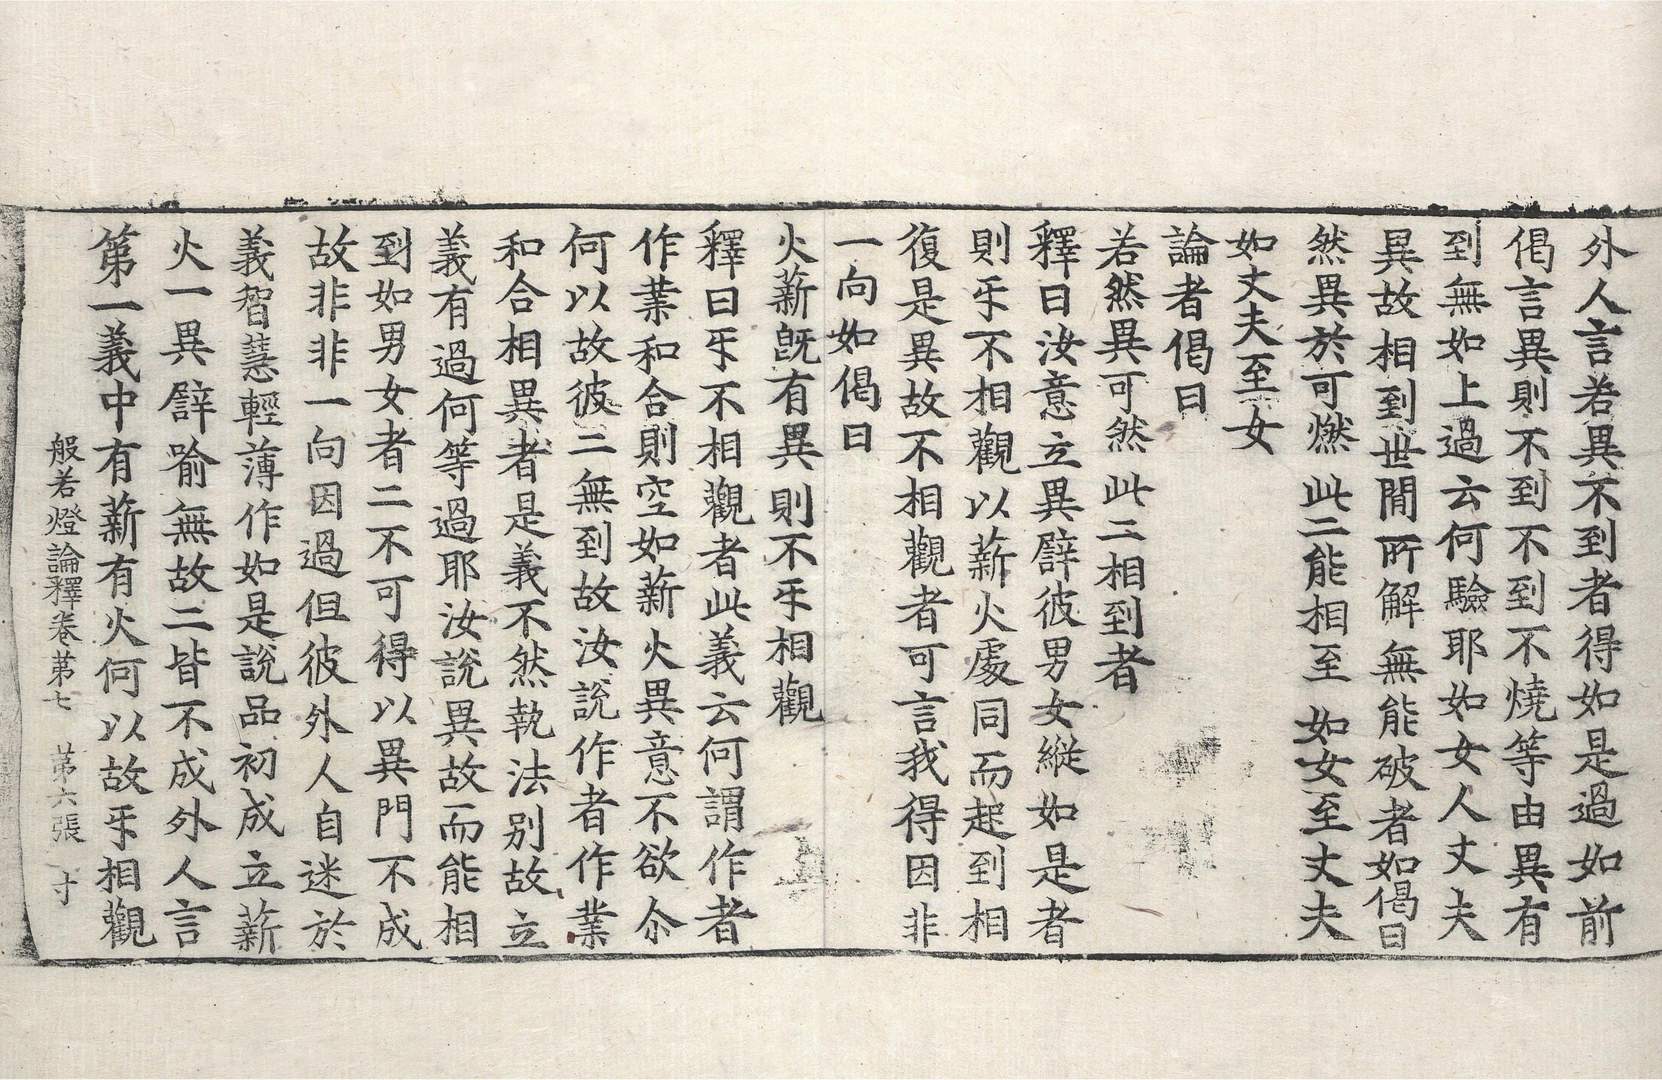 外人言若異不到者得如是過如前
偈言異則不到不到不燒等由異有
到無如上過云何驗耶如女人丈夫
異故相到世間所解無能破者如偈曰
然異於可燃 此二能相至 如女至丈夫
如丈夫至女
論者偈曰
若然異可然 此二相到者
釋曰汝意立異譬彼男女縱如是者
則㸦不相觀以薪火處同而起到相
復是異故不相觀者可言我得因非
一向如偈曰
火薪旣有異則不㸦相觀
釋曰㸦不相觀者此義云何謂作者
作業和合則空如薪火異意不欲尒
何以故彼二無到故汝說作者作業
和合相異者是義不然執法別故立
義有過何等過耶汝說異故而能相
到如男女者二不可得以異門不成
故非非一向因過但彼外人自迷於
義智慧輕薄作如是說品初成立薪
火一異譬喻無故二皆不成外人言
第一義中有薪有火何以故㸦相觀
般若燈論釋卷第七 第六張 寸